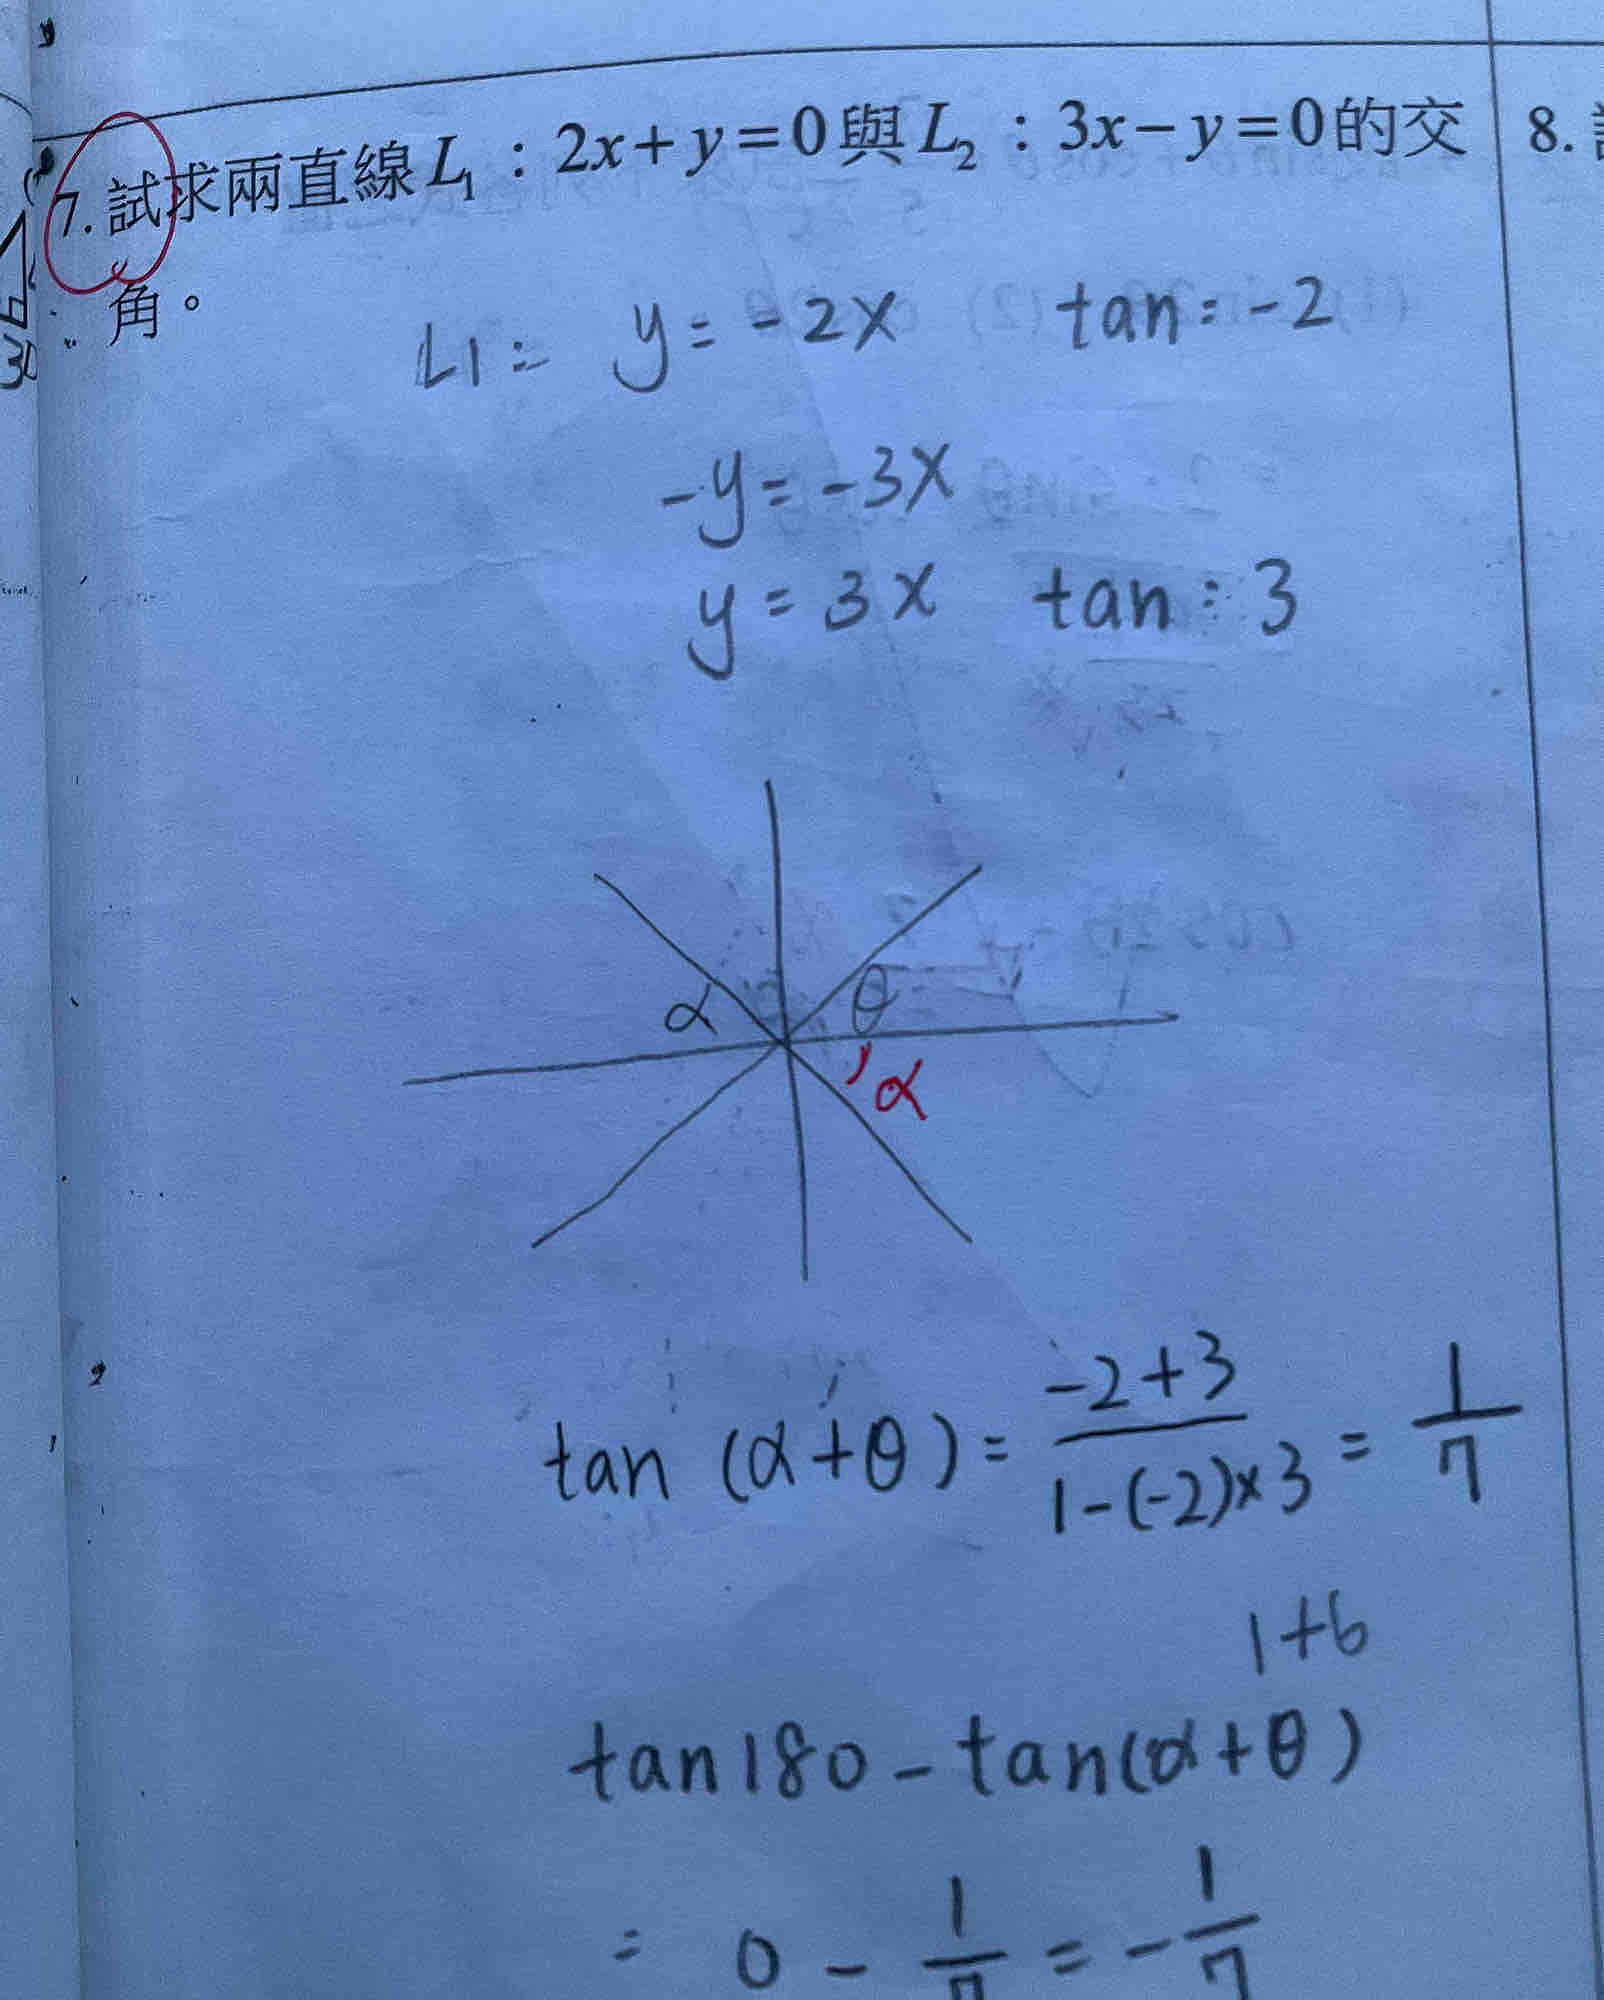 7. 試求兩直線 L₁：2x+y=0 與 L₂：3x−y=0 的交
角。
8.
L1: y = -2x tan = -2
-y = -3x
y = 3x tan = 3
α θ
α
tan (α+θ) = \frac{-2+3}{1-(-2)×3} = \frac{1}{7}
1+6
tan180 - tan(α+θ)
= 0 - \frac{1}{7} = -\frac{1}{7}